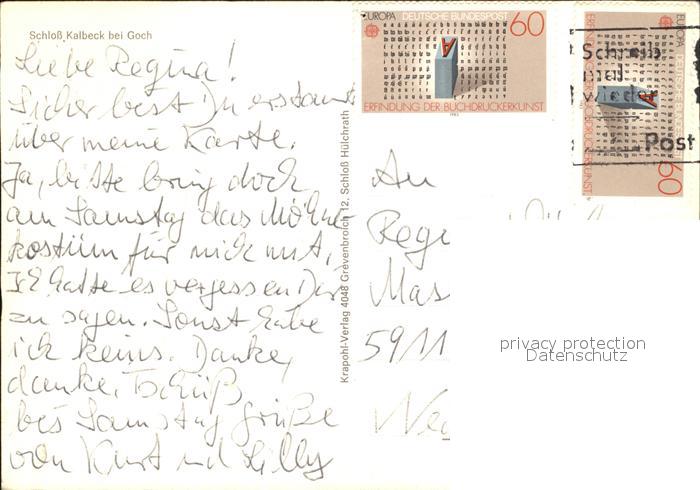 Schloß Kalbeck bei Goch
Liebe Regina!
Sicher bist Du erstaunt
über meine Karte.
Ja, bitte bring doch
am Samstag das Möhne-
kostüm für mich mit,
Ich hatte es vergessen Dir
zu sagen. Sonst habe
ich keins. Danke,
danke. Tschüß
bis Samstag Grüße
von Kurt und Lilly
Krapohl-Verlag 4048 Grevenbroich 12, Schloß Hülchrath
EUROPA DEUTSCHE BUNDESPOST 60
ERFINDUNG DER BUCHDRUCKERKUNST
1983
EUROPA DEUTSCHE BUNDESPOST 60
ERFINDUNG DER BUCHDRUCKERKUNST
Schreib
mal
wieder
Post
An
Regi
Mas
5911
privacy protection
Datenschutz